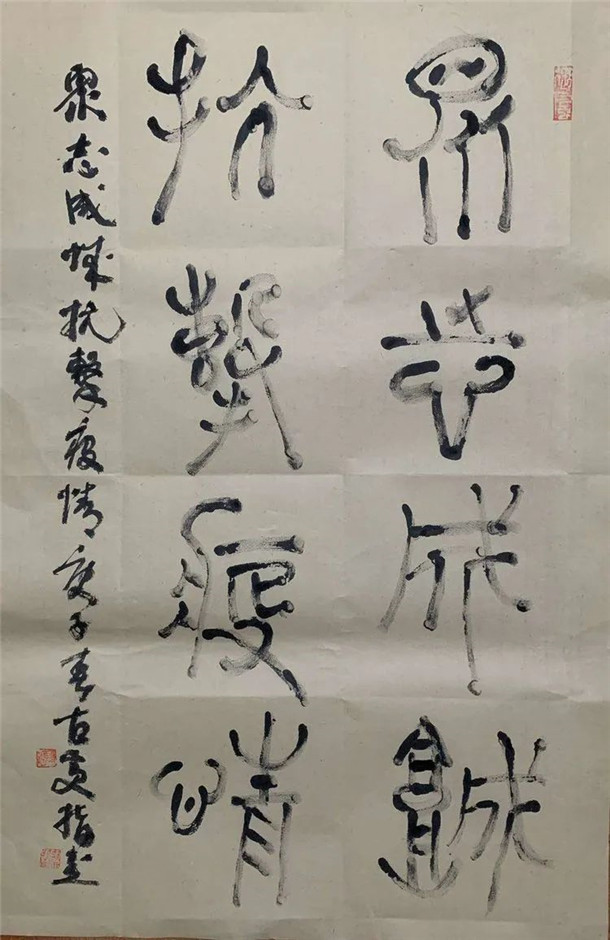 眾志成城
抗擊疫情
眾志成城抗擊疫情庚子春古夷指書